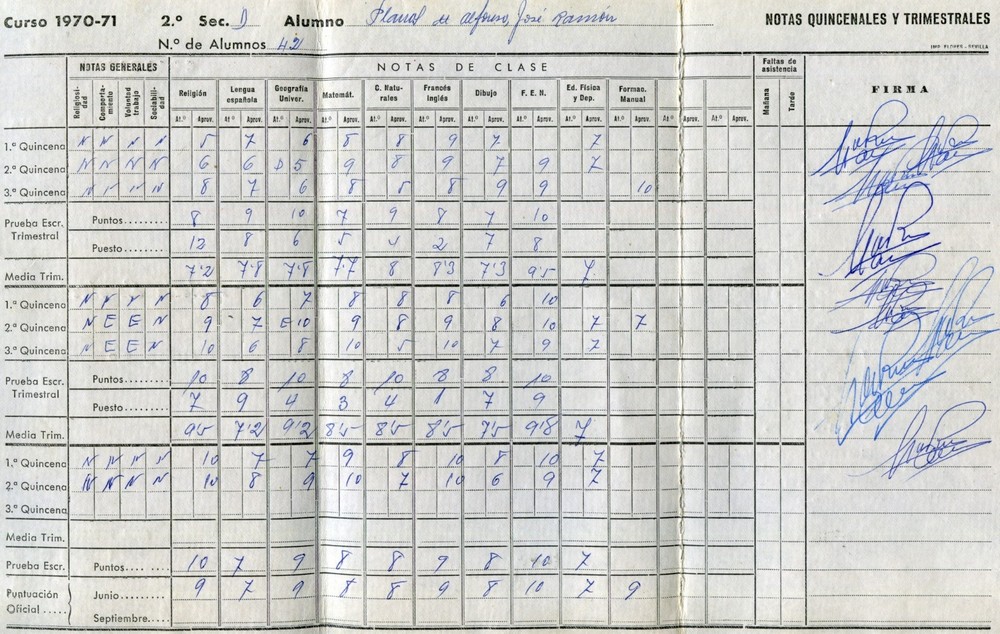 Curso 1970-71 2.º Sec. D Alumno José Ramón NOTAS QUINCENALES Y TRIMESTRALES
N.º de Alumnos 42 IMP. FLORES.-SEVILLA
NOTAS GENERALES NOTAS DE CLASE Faltas de asistencia
Religiosidad Comportamiento Voluntad trabajo Sociabilidad Religión Lengua española Geografía Univer. Matemát. C. Naturales Francés Inglés Dibujo F. E. N. Ed. Física y Dep. Formac. Manual Mañana Tarde FIRMA
At.º Aprov. At.º Aprov. At.º Aprov. At.º Aprov. At.º Aprov. At.º Aprov. At.º Aprov. At.º Aprov. At.º Aprov. At.º Aprov. At.º Aprov. At.º Aprov.
1.ª Quincena N N N N 5 7 6 8 8 9 7 7
2.ª Quincena N N N N 6 6 D 5 9 8 9 7 9 7
3.ª Quincena N N N N 8 7 6 8 5 8 9 9 10
Prueba Escr. Trimestral Puntos........ 8 9 10 7 9 8 7 10
Puesto........ 12 8 6 5 4 2 7 8
Media Trim. 7'2 7'8 7'8 7'7 8 8'3 7'3 9'5 7
1.ª Quincena N N N N 8 6 7 8 8 8 6 10
2.ª Quincena N E E N 9 7 E 10 9 8 9 8 10 7 7
3.ª Quincena N E E N 10 6 8 10 5 10 7 9 7
Prueba Escr. Trimestral Puntos........ 10 8 10 8 10 8 8 10
Puesto........ 7 9 4 3 4 1 7 9
Media Trim. 9'5 7'2 9'2 8'5 8'5 8'5 7'5 9'8 7
1.ª Quincena N N N N 10 7 7 9 8 10 8 10 7
2.ª Quincena N N N N 10 8 9 10 7 10 6 9 7
3.ª Quincena
Media Trim.
Prueba Escr. Puntos........ 10 7 9 8 8 9 8 10 7
Puntuación Oficial ..... Junio........ 9 7 9 8 8 9 8 10 7 9
Septiembre....